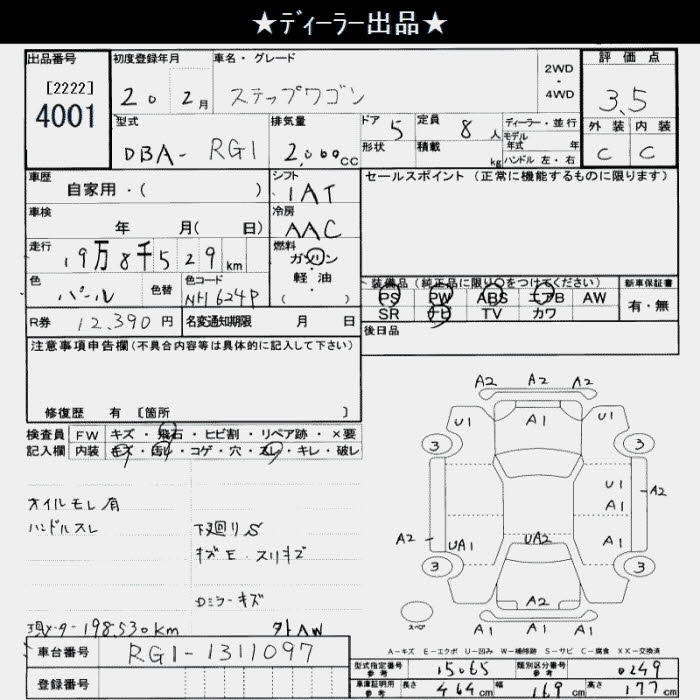 ★ディーラー出品★
出品番号
[2222]
4001
初度登録年月
20 2月
車名・グレード
ステップワゴン
2WD
・
4WD
評価点
3.5
外装 内装
C C
型式
DBA- RG1
排気量
2,000cc
ドア 5
形状
定員 8人
積載 kg
ディーラー・並行
モデル
年式 年
ハンドル 左・右
車歴
自家用・( )
シフト
IAT
セールスポイント (正常に機能するものに限ります)
車検
年 月( 日)
冷房
AAC
走行
19万8千529km
燃料
ガソリン
・
軽油
( )
色
パール
色替
色コード
NH624P
装備品(純正品に限り○をつけてください)
PS PW ABS エアB AW
SR ナビ TV カワ
新車保証書
有・無
R券 12,390円
名変通知期限 月 日
後日品
注意事項申告欄(不具合内容等は具体的に記入して下さい)
修復歴 有 [箇所 ]
検査員
記入欄
FW キズ・飛石・ヒビ割・リペア跡・×要
内装 キズ・汚レ・コゲ・穴・スレ・キレ・破レ
オイルモレ有
ハンドルスレ
下廻りS
キズE・スリキズ
Dミラーキズ
現メーター198,530km
外AW
A2 A2 A2
U1 A1 U1
3 3
U1
A1 A2
A2 UA1 UA2 A1
3 3
A2
スペア
A1 A1 A1
A-キズ E-エクボ U-凹み W-補修跡 S-サビ C-腐食 XX-交換済
車台番号 RG1-1311097
登録番号
型式指定番号
参考
15065
類別区分番号
参考
0249
車庫証明用
参考
長さ 464cm 幅 169cm 高さ 177cm